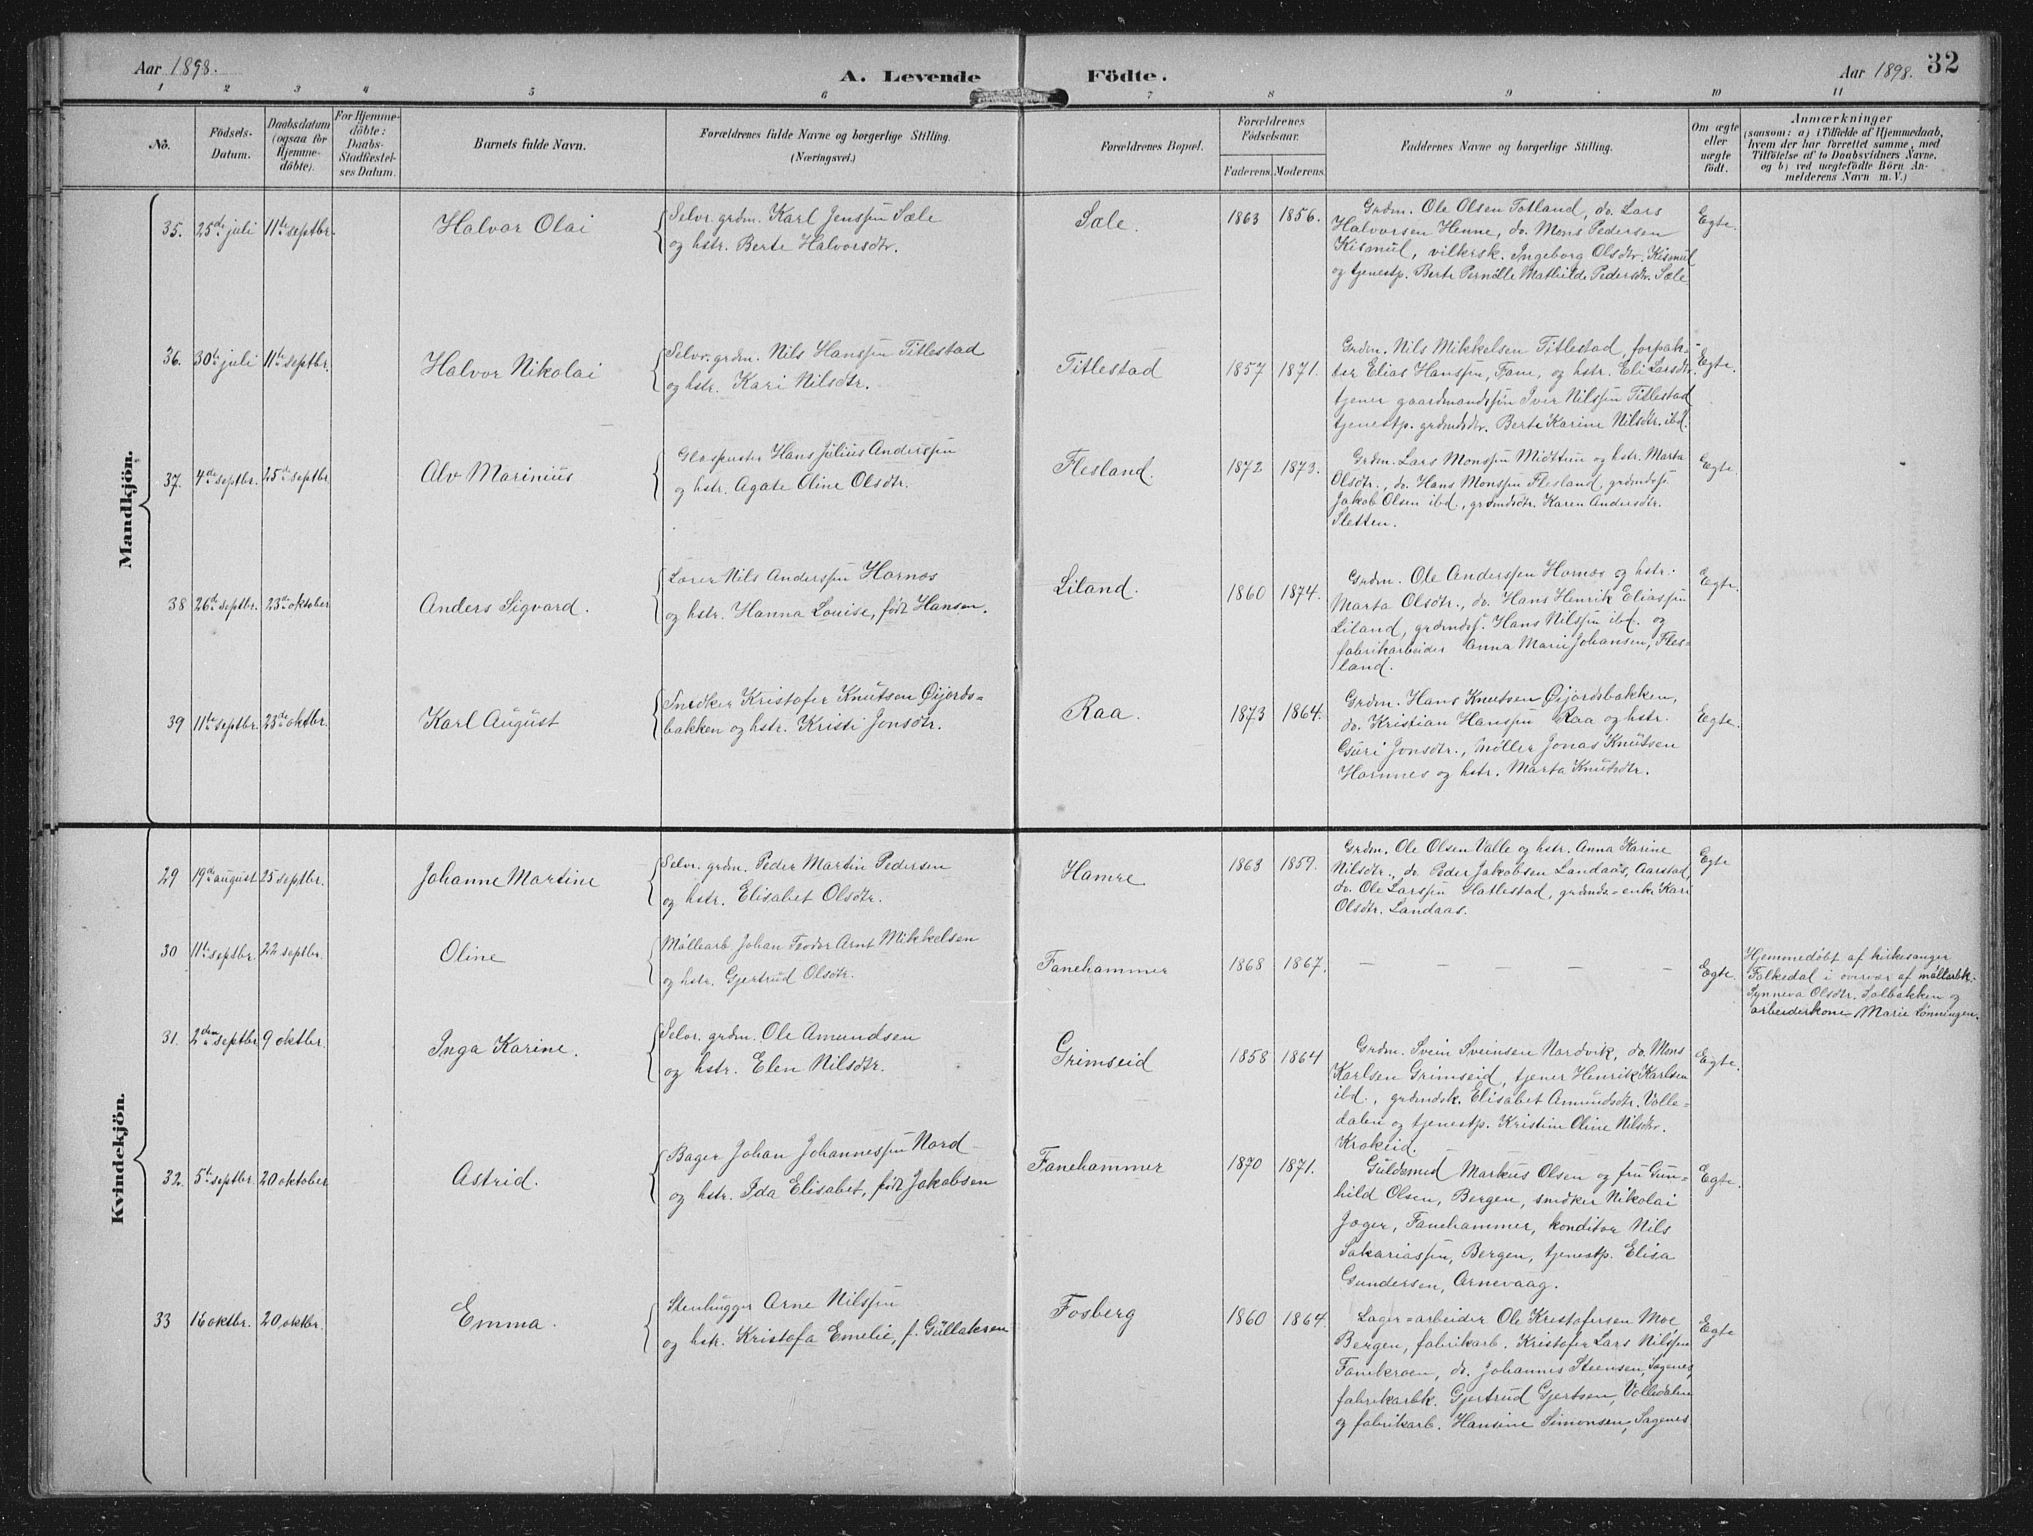 Aar 1898.
A. Levende Födte.
Aar 1898.
32
1 2 3 4 5 6 7 8 9 10 11
No.
Födsels-Datum.
Daabsdatum (ogsaa for Hjemmedöbte).
For Hjemmedöbte: Daabs-Stadfæstelses Datum.
Barnets fulde Navn.
Forældrenes fulde Navne og borgerlige Stilling.
(Næringsvei.)
Forældrenes Bopæl.
Forældrenes Födselsaar.
Faderens. Moderens.
Faddernes Navne og borgerlige Stilling.
Om ægte eller uægte födt.
Anmærkninger
(saasom: a) i Tilfælde af Hjemmedaab,
hvem der har forrettet samme, med
Tilföielse af to Daabsvidners Navne,
og b) ved uægtefödte Börn An-
melderens Navn m. V.)
Mandkjön.
35. 25de juli 11te septbr. Halvor Olai
Selvr. grdm. Karl Jenssen Sæle
og hstr. Berte Halvorsdtr.
Sæle. 1863 1856.
Grdm. Ole Olsen Totland, do. Lars
Halvorsen Henne, do. Mons Pedersen
Kismul, vilkersk. Ingeborg Olsdtr. Kismul
og tjenestp. Berte Pernille Mathilde Pedersdtr. Sæle
Egte.
36. 30te juli 11te septbr. Halvor Nikolai
Selvr. grdm. Nils Hanssen Titlestad
og hstr. Kari Nilsdtr.
Titlestad 1857 1871.
Grdm. Nils Mikkelsen Titlestad, forpak-
ter Elias Hanssen, Fane, og hstr. Eli Larsdtr.
tjener gaardmandssøn Iver Nilssen Titlestad
tjenestp. grdmdsdtr. Berte Karine Nilsdtr. ibd.
Egte.
37. 4de septbr. 25de septbr. Alv Marinius
Glaspuster Hans Julius Anderssen
og hstr. Agate Oline Olsdtr.
Flesland. 1872 1873.
Grdm. Lars Monssen Midttun og hstr. Marta
Olsdtr., do. Hans Monssen Flesland, grdmdss.
Jakob Olsen ibd., grdmdsdtr. Karen Andersdtr.
Sletten.
Egte.
38 26de septbr. 23de oktober Anders Sigvard.
Lærer Nils Anderssen Hornæs
og hstr. Hanna Louise, født Hansen.
Liland. 1860 1874.
Grdm. Ole Anderssen Hornæs og hstr.
Marta Olsdtr., do. Hans Henrik Eliassen
Liland, grdmdss. Hans Nilssen ibd. og
fabrikarbeider Anna Marie Johansen, Fles-
land.
Egte.
39 11te septbr. 23de oktbr. Karl August
Snedker Kristofer Knutsen Øijords-
bakken og hstr. Kristi Jonsdtr.
Raa. 1873 1864.
Grdm. Hans Knutsen Øijordsbakken,
do. Kristian Hanssen Raa og hstr.
Guri Jonsdtr., møller Jonas Knutsen
Hamnes og hstr. Marta Knutsdtr.
Egte.
Kvindekjön.
29 19de august 25 septbr. Johanne Martine
Selvr. grdm. Peder Martin Pedersen
og hstr. Elisabet Olsdtr.
Hamre 1863 1857.
Grdm. Ole Olsen Valle og hstr. Anna Karine
Nilsdtr., do. Peder Jakobsen Landaas, Aarstad,
do. Ole Larssen Hatlestad, grdmds-enke Kari
Olsdtr. Landaas.
Egte
30 11te septbr. 22 septbr. Oline
Møllearb. Johan Teodor Arnt Mikkelsen
og hstr. Gjertrud Olsdtr.
Fanehammer 1868 1867.
— — — —
Egte.
Hjemmedøbt af kirkesanger
Falkedal i overvær af møllarbk.
Synneva Olsdtr. Solbakken og
arbeiderkone Marie Lønningen.
31. 2den septbr 9 oktbr. Inga Karine.
Selvr. grdm. Ole Amundsen
og hstr. Elen Nilsdtr.
Grimseid 1858 1864
Grdm. Svein Sveinsen Nordvik, do. Mons
Karlsen Grimseid, tjener Henrik Karlsen
ibd., grdmdsk. Elisabet Amundsdtr. Valle-
dalen og tjenestp. Kristine Oline Nilsdtr.
Krokeid.
Egte.
32. 5te septbr. 20 oktober Astrid.
Bager Johan Johannessen Nord
og hstr. Ida Elisabet, født Jakobsen
Fanehammer 1870 1871.
Guldsmed Markus Olsen og fru Gun-
hild Olsen, Bergen, snedker Nikolai
Jæger, Fanehammer, konditor Nils
Sakariassen, Bergen, tjenestp. Elisa
Gundersen, Arnevaag.
Egte.
33 16 oktbr. 20 oktbr. Emma.
Stenhugger Arne Nilssen
og hstr. Kristofa Emelie, f. Gullaksen
Fosberg 1860 1864.
Lager-arbeider Ole Kristofersen Moe
Bergen, fabrikarb. Kristofer Lars Nilssen
Fanekroen, do. Johannes Steensen, Sagenes,
fabrikarbk. Gjertrud Gjertsen, Valledalen
og fabrikarb. Hansine Simonsen, Sagenes
Egte